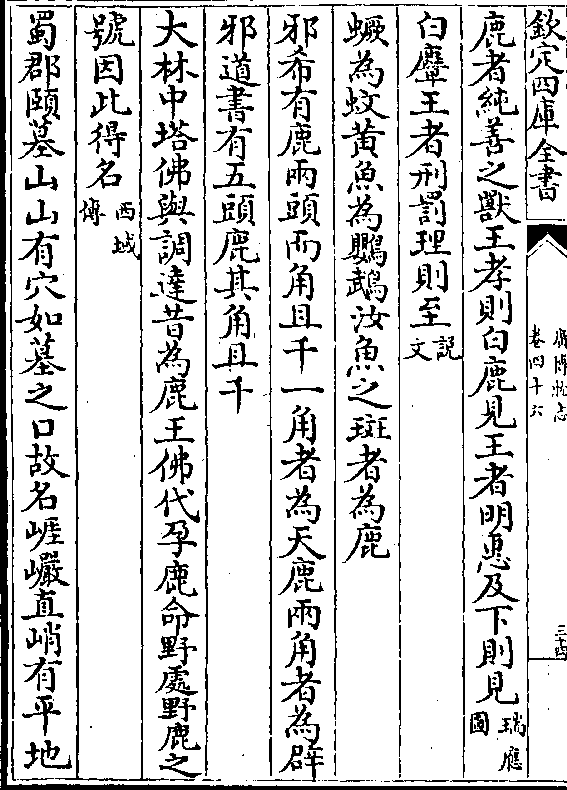 欽定四庫全書
廣博物志
卷四十六
三十四
鹿者純善之獸王孝則白鹿見王者明惠及下則見瑞應圖
白麞王者刑罰理則至說文
蟩為蚊黃魚為鸚鵡汝魚之斑者為鹿
邪希有鹿兩頭而角且千一角者為天鹿兩角者為辟
邪道書有五頭鹿其角且千
大林中塔佛與調達昔為鹿王佛代孕鹿命野處野鹿之
號因此得名西域傳
蜀郡頤墓山山有穴如墓之口故名崕巖直峭有平地